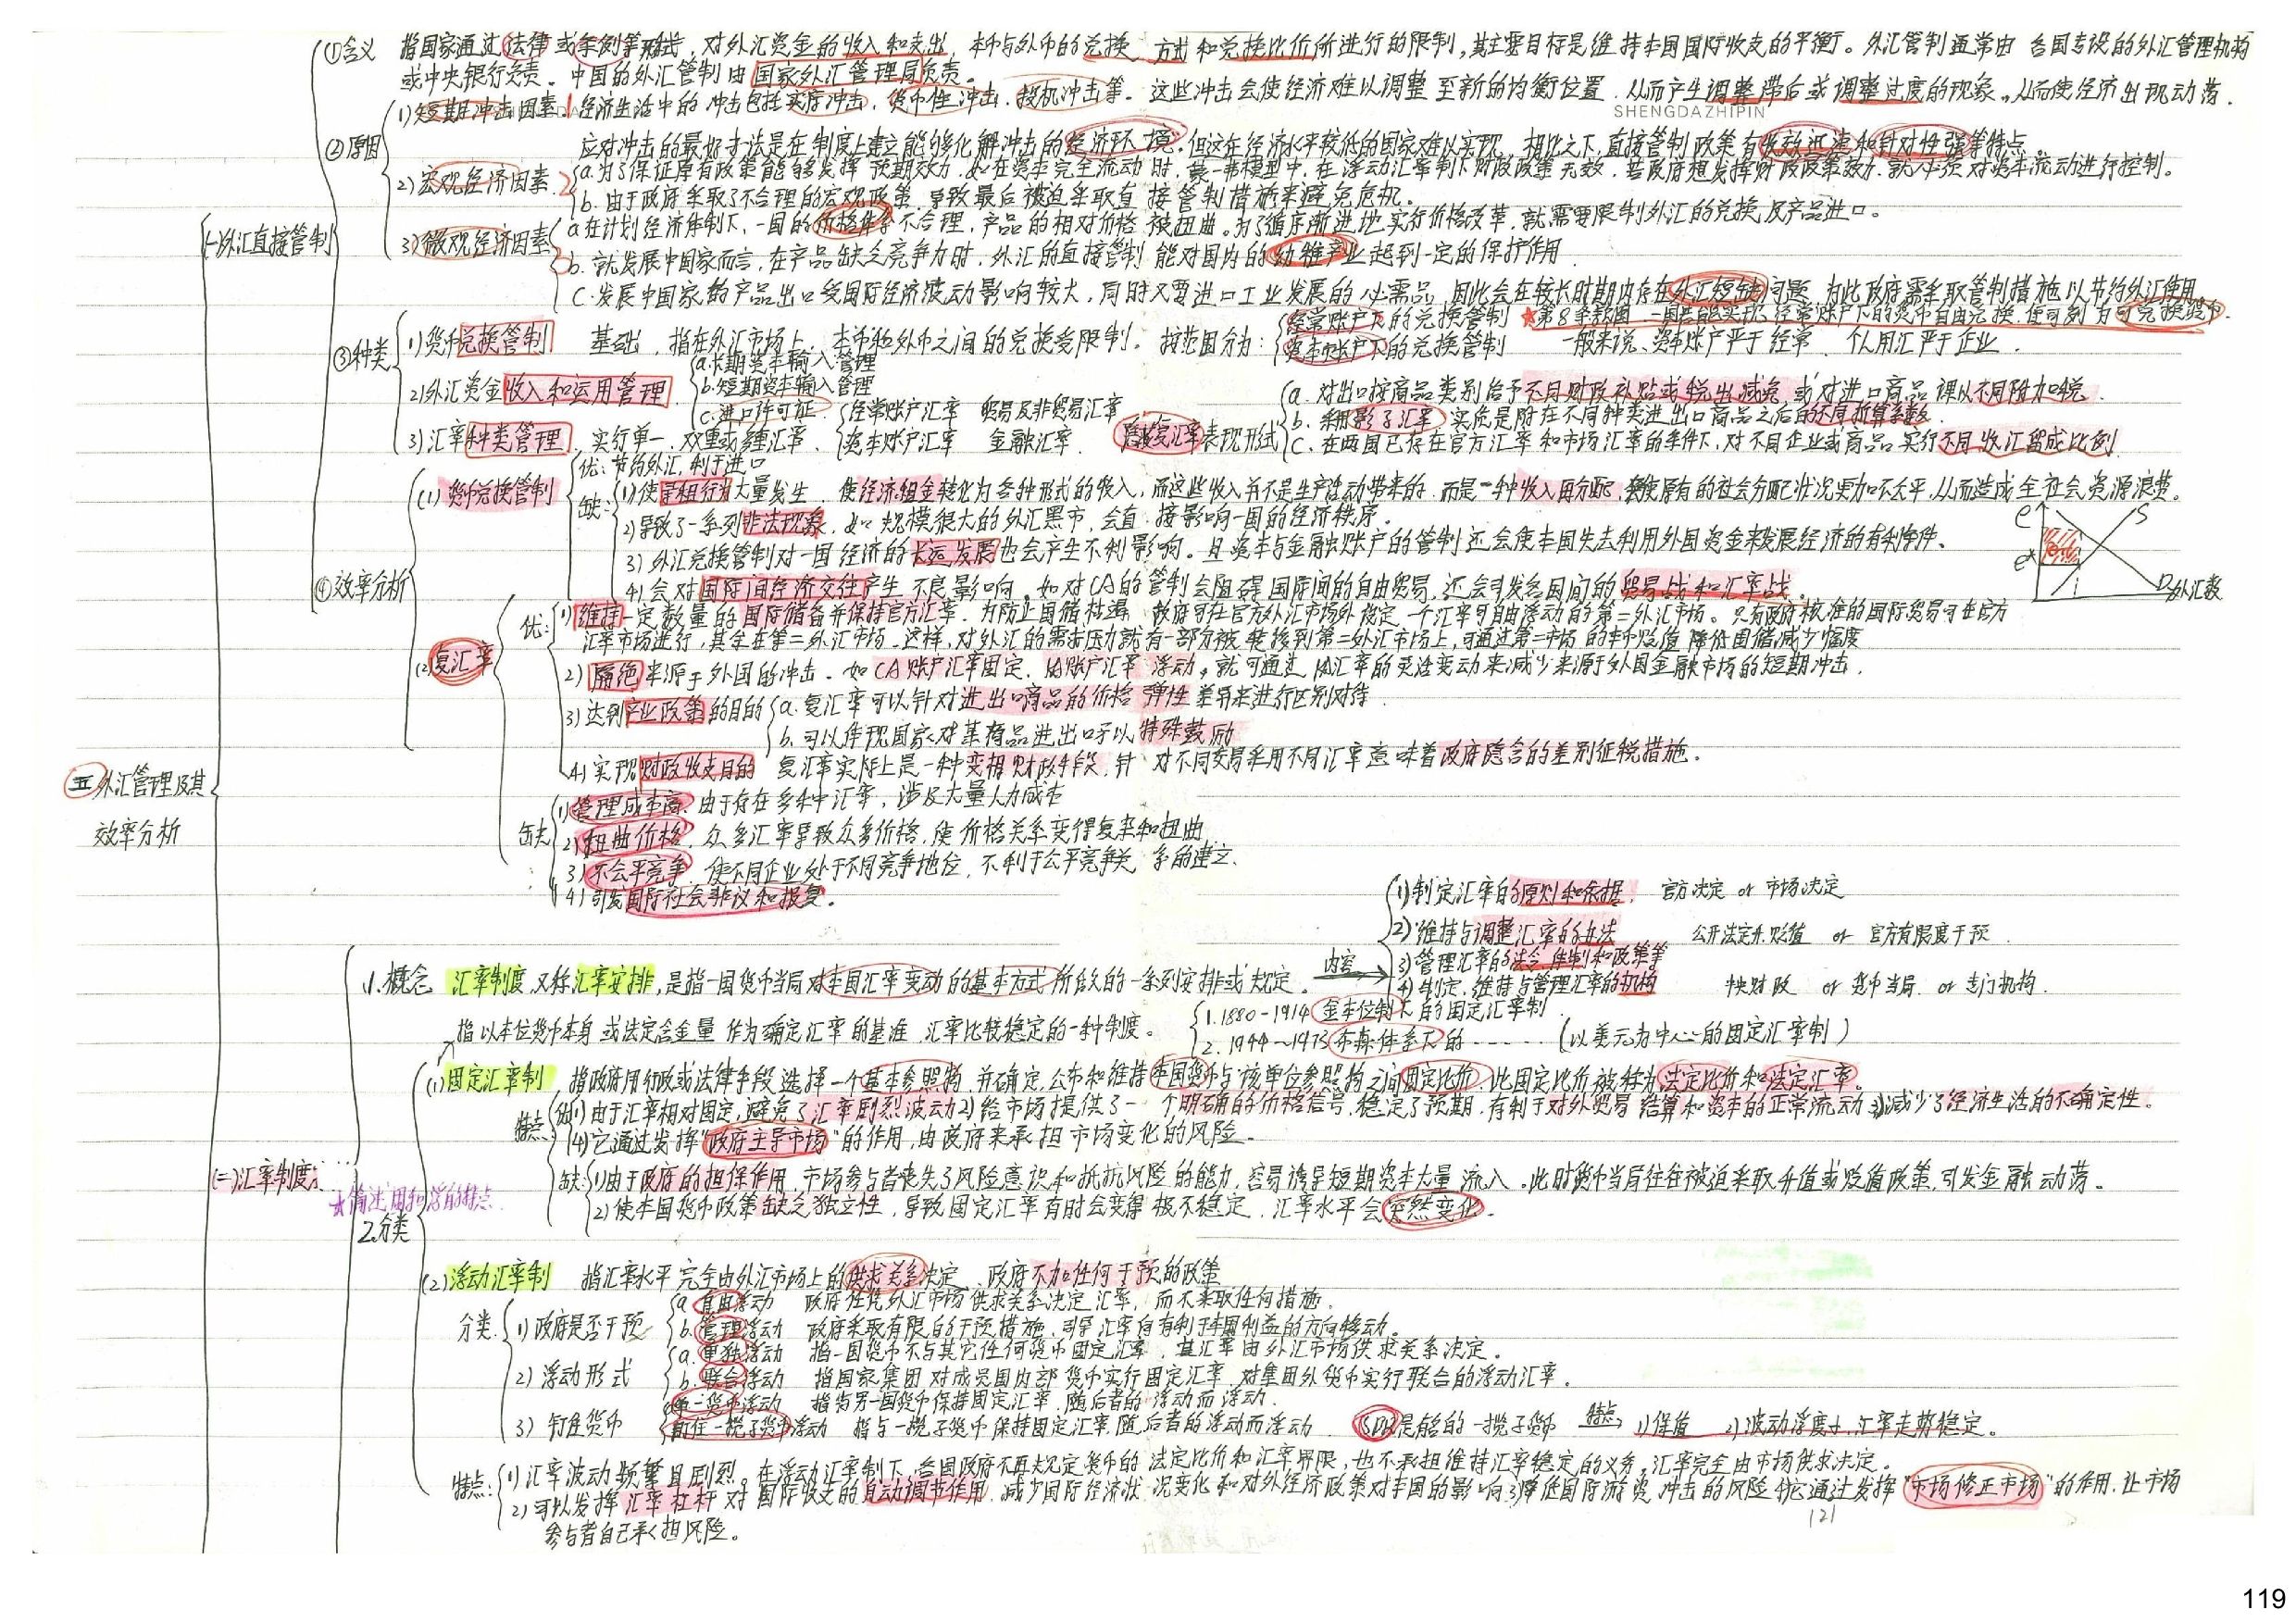 ①含义 指国家通过法律或条例等形式，对外汇资金的收入和支出，本币与外币的兑换方式和兑换比价所进行的限制，其主要目标是维持本国国际收支的平衡。外汇管制通常由各国专设的外汇管理机构
或中央银行负责。中国的外汇管制由国家外汇管理局负责。
②原因
1)短期冲击因素：经济生活中的冲击包括实际冲击、货币性冲击、投机冲击等。这些冲击会使经济难以调整至新的均衡位置，从而产生调整滞后或调整过度的现象，从而使经济出现动荡。
SHENGDAZHIPIN
应对冲击的最好方法是在制度上建立能够化解冲击的经济环境。但这在经济水平较低的国家难以实现，相比之下，直接管制政策有收效迅速和针对性强等特点。
2)宏观经济因素
a.为了保证原有政策能够发挥预期效力，如在资本完全流动时，蒙-弗模型中，在浮动汇率制下财政政策无效，若政府想发挥财政政策效力，就必须对资本流动进行控制。
b.由于政府采取了不合理的宏观政策，导致最后被迫采取直接管制措施来避免危机。
(一)外汇直接管制
3)微观经济因素
a.在计划经济体制下，一国的价格体系不合理，产品的相对价格被扭曲。为了循序渐进地实行价格改革，就需要限制外汇的兑换及产品进口。
b.就发展中国家而言，在产品缺乏竞争力时，外汇的直接管制能对国内的幼稚产业起到一定的保护作用
C.发展中国家的产品出口受国际经济波动影响较大，同时又要进口工业发展的必需品，因此会在较长时期内存在外汇短缺问题，为此政府需采取管制措施以节约外汇使用。
③种类
1)货币兑换管制 基础，指在外汇市场上，本币和外币之间的兑换受限制。按范围分为：
经常账户下的兑换管制 ★第8条款国 一国若能实现经常账户下的货币自由兑换，便可列为可兑换货币.
资本账户下的兑换管制 一般来说、资本账户严于经常、个人用汇严于企业.
2)外汇资金收入和运用管理
a.长期资本输入管理
b.短期资本输入管理
c.进口许可证
3)汇率种类管理，实行单一、双重或多种汇率.
经常账户汇率 贸易及非贸易汇率
资本账户汇率 金融汇率.
复汇率表现形式
a.对出口按商品类别给予不同财政补贴或税出减免或对进口商品课以不同附加税.
b.采用影子汇率 实质是附在不同种类进出口商品之后的不同折算系数.
C.在两国已存在官方汇率和市场汇率的条件下，对不同企业或商品实行不同收汇留成比例
④效率分析
(1)货币兑换管制
优：节约外汇，利于进口
缺：1)使寻租行为大量发生，使经济租金转化为各种形式的收入，而这些收入并不是生产活动带来的，而是一种收入再分配，致使原有的社会分配状况更加不公平，从而造成全社会资源浪费。
2)导致了一系列非法现象，如规模很大的外汇黑市，会直接影响一国的经济秩序。
3)外汇兑换管制对一国经济的长远发展也会产生不利影响。且资本与金融账户的管制还会使本国失去利用外国资金来发展经济的有利条件、
4)会对国际间经济交往产生不良影响，如对CA的管制会阻碍国际间的自由贸易，还会引发各国间的贸易战和汇率战。
e S
e* D 外汇数
(2)复汇率
优：1)维持一定数量的国际储备并保持官方汇率，为防止国储枯竭，政府可在官方外汇市场外设定一个汇率可自由浮动的第二外汇市场。只有政府核准的国际贸易可在官方
汇率市场进行，其余在第二外汇市场，这样，对外汇的需求压力就有一部分被转移到第二外汇市场上，可通过第二市场的本币贬值降低国储减少幅度
2)隔绝来源于外国的冲击。如CA账户汇率固定、KA账户汇率浮动。就可通过KA汇率的灵活变动来减少来源于外国金融市场的短期冲击.
3)达到产业政策的目的
a.复汇率可以针对进出口商品的价格弹性差异来进行区别对待
b.可以体现国家对某商品进出口予以特殊鼓励
4)实现财政收支目的 复汇率实际上是一种变相财政手段，针对不同交易采用不同汇率意味着政府隐含的差别征税措施.
五外汇管理及其
效率分析
缺
1)管理成本高.由于存在多种汇率，涉及大量人力成本
2)扭曲价格，众多汇率导致众多价格，使价格关系变得复杂和扭曲
3)不公平竞争，使不同企业处于不同竞争地位，不利于公平竞争关系的建立.
4)引发国际社会非议和报复.
(二)汇率制度
1.概念 汇率制度，又称汇率安排，是指一国货币当局对本国汇率变动的基本方式所做的一系列安排或规定。内容
1)制定汇率的原则和依据， 官方决定 or 市场决定
2)维持与调整汇率的办法 公开法定升贬值 or 官方有限度干预.
3)管理汇率的法令、体制和政策等
4)制定、维持与管理汇率的机构 财政 or 货币当局 or 专门机构.
指以本位货币本身或法定含金量作为确定汇率的基准，汇率比较稳定的一种制度。
1.1880-1914金本位制下的固定汇率制
2.1944~1973布森体系下的……（以美元为中心的固定汇率制）
★简述固和浮的特点.
2.分类
(1)固定汇率制 指政府用行政或法律手段选择一个基本参照物，并确定、公布和维持本国货币与该单位参照物之间固定比价，此固定比价被称为法定比价和法定汇率。
特点
优 1)由于汇率相对固定，避免了汇率剧烈波动2)给市场提供了一个明确的价格信号，稳定了预期，有利于对外贸易结算和资本的正常流动3)减少了经济生活的不确定性。
(4)它通过发挥"政府主导市场"的作用，由政府来承担市场变化的风险。
缺 1)由于政府的担保作用，市场参与者丧失了风险意识和抵抗风险的能力，容易诱导短期资本大量流入。此时货币当局往往被迫采取升值或贬值政策，引发金融动荡。
2)使本国货币政策缺乏独立性，导致固定汇率有时会变得极不稳定，汇率水平会突然变化.
(2)浮动汇率制 指汇率水平完全由外汇市场上的供求关系决定、政府不加任何干预的政策
分类
1)政府是否干预
a.自由浮动 政府任凭外汇市场供求关系决定汇率，而不采取任何措施.
b.管理浮动 政府采取有限的干预措施，引导汇率向有利于本国利益的方向移动。
2)浮动形式
a.单独浮动 指一国货币不与其它任何货币固定汇率，其汇率由外汇市场供求关系决定。
b.联合浮动 指国家集团对成员国内部货币实行固定汇率，对集团外货币实行联合的浮动汇率.
3)钉住货币
单一货币浮动 指与另一国货币保持固定汇率，随后者的浮动而浮动.
钉住一揽子货币浮动 指与一揽子货币保持固定汇率，随后者的浮动而浮动.
SDR是的一揽子货币 特点 1)保值 2)波动浮度小，汇率走势稳定。
特点：
1)汇率波动频繁且剧烈。在浮动汇率制下，各国政府不再规定货币的法定比价和汇率界限，也不承担维持汇率稳定的义务，汇率完全由市场供求决定。
2)可以发挥汇率杠杆对国际收支的自动调节作用，减少国际经济状况变化和对外经济政策对本国的影响3)降低国际游资冲击的风险4)它通过发挥"市场修正市场"的作用，让市场
参与者自己承担风险。
121
119